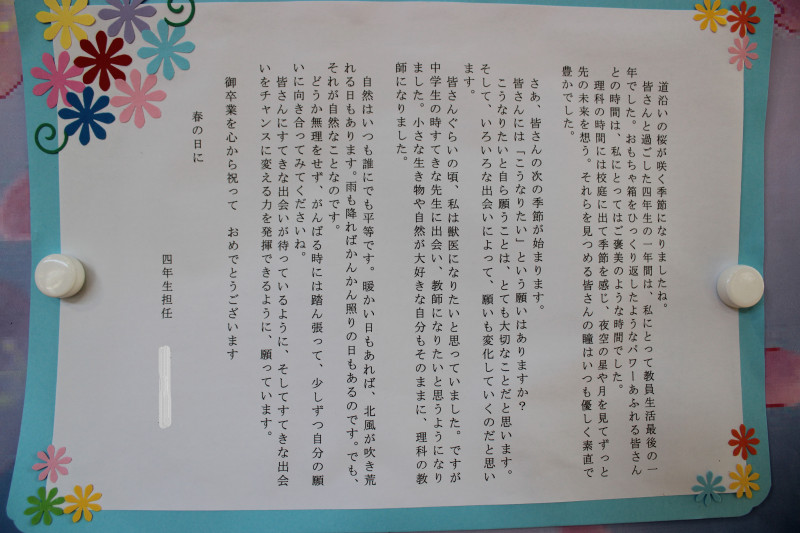 道沿いの桜が咲く季節になりましたね。
皆さんと過ごした四年生の一年間は、私にとって教員生活最後の一
年でした。おもちゃ箱をひっくり返したようなパワーあふれる皆さん
との時間は、私にとってはご褒美のような時間でした。
理科の時間には校庭に出て季節を感じ、夜空の星や月を見てずっと
先の未来を想う。それらを見つめる皆さんの瞳はいつも優しく素直で
豊かでした。
さあ、皆さんの次の季節が始まります。
皆さんには「こうなりたい」という願いはありますか？
こうなりたいと自ら願うことは、とても大切なことだと思います。
そして、いろいろな出会いによって、願いも変化していくのだと思い
ます。
皆さんぐらいの頃、私は獣医になりたいと思っていました。ですが
中学生の時すてきな先生に出会い、教師になりたいと思うようになり
ました。小さな生き物や自然が大好きな自分もそのままに、理科の教
師になりました。
自然はいつも誰にでも平等です。暖かい日もあれば、北風が吹き荒
れる日もあります。雨も降ればかんかん照りの日もあるのです。でも、
それが自然なことなのです。
どうか無理をせず、がんばる時には踏ん張って、少しずつ自分の願
いに向き合ってみてくださいね。
皆さんにすてきな出会いが待っているように、そしてすてきな出会
いをチャンスに変える力を発揮できるように、願っています。
御卒業を心から祝って　おめでとうございます
春の日に
四年生担任